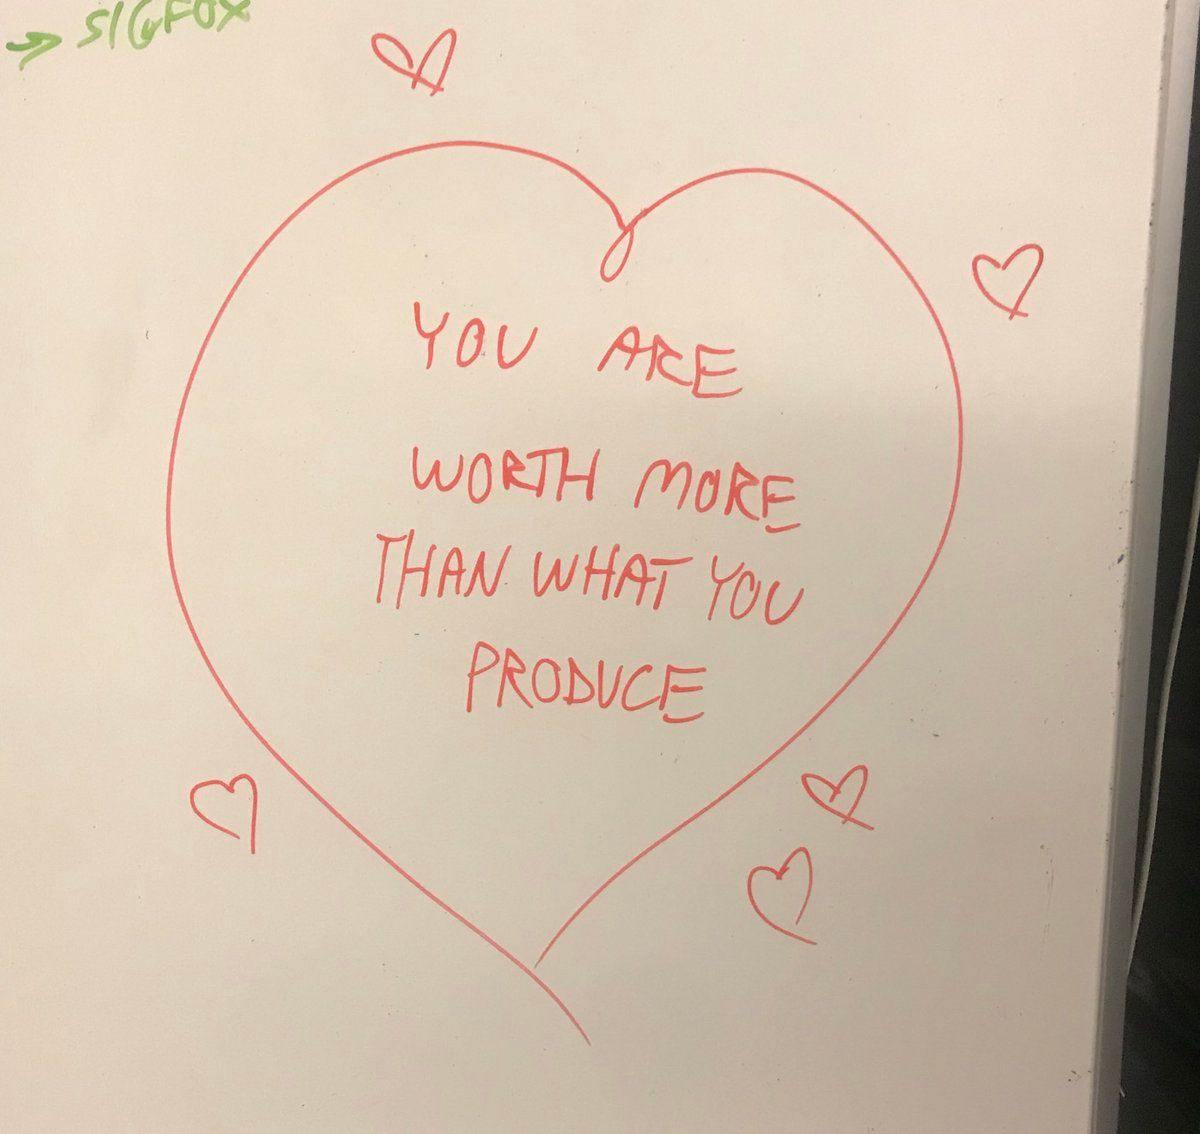 → SIGFOX
YOU ARE
WORTH MORE
THAN WHAT YOU
PRODUCE